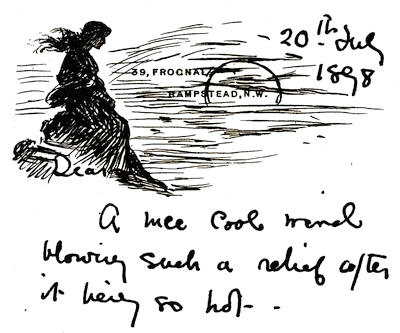 20th July
1898
39, FROGNAL,
HAMPSTEAD, N.W.
Dear
A nice cool wind
blowing such a relief after
it being so hot - .